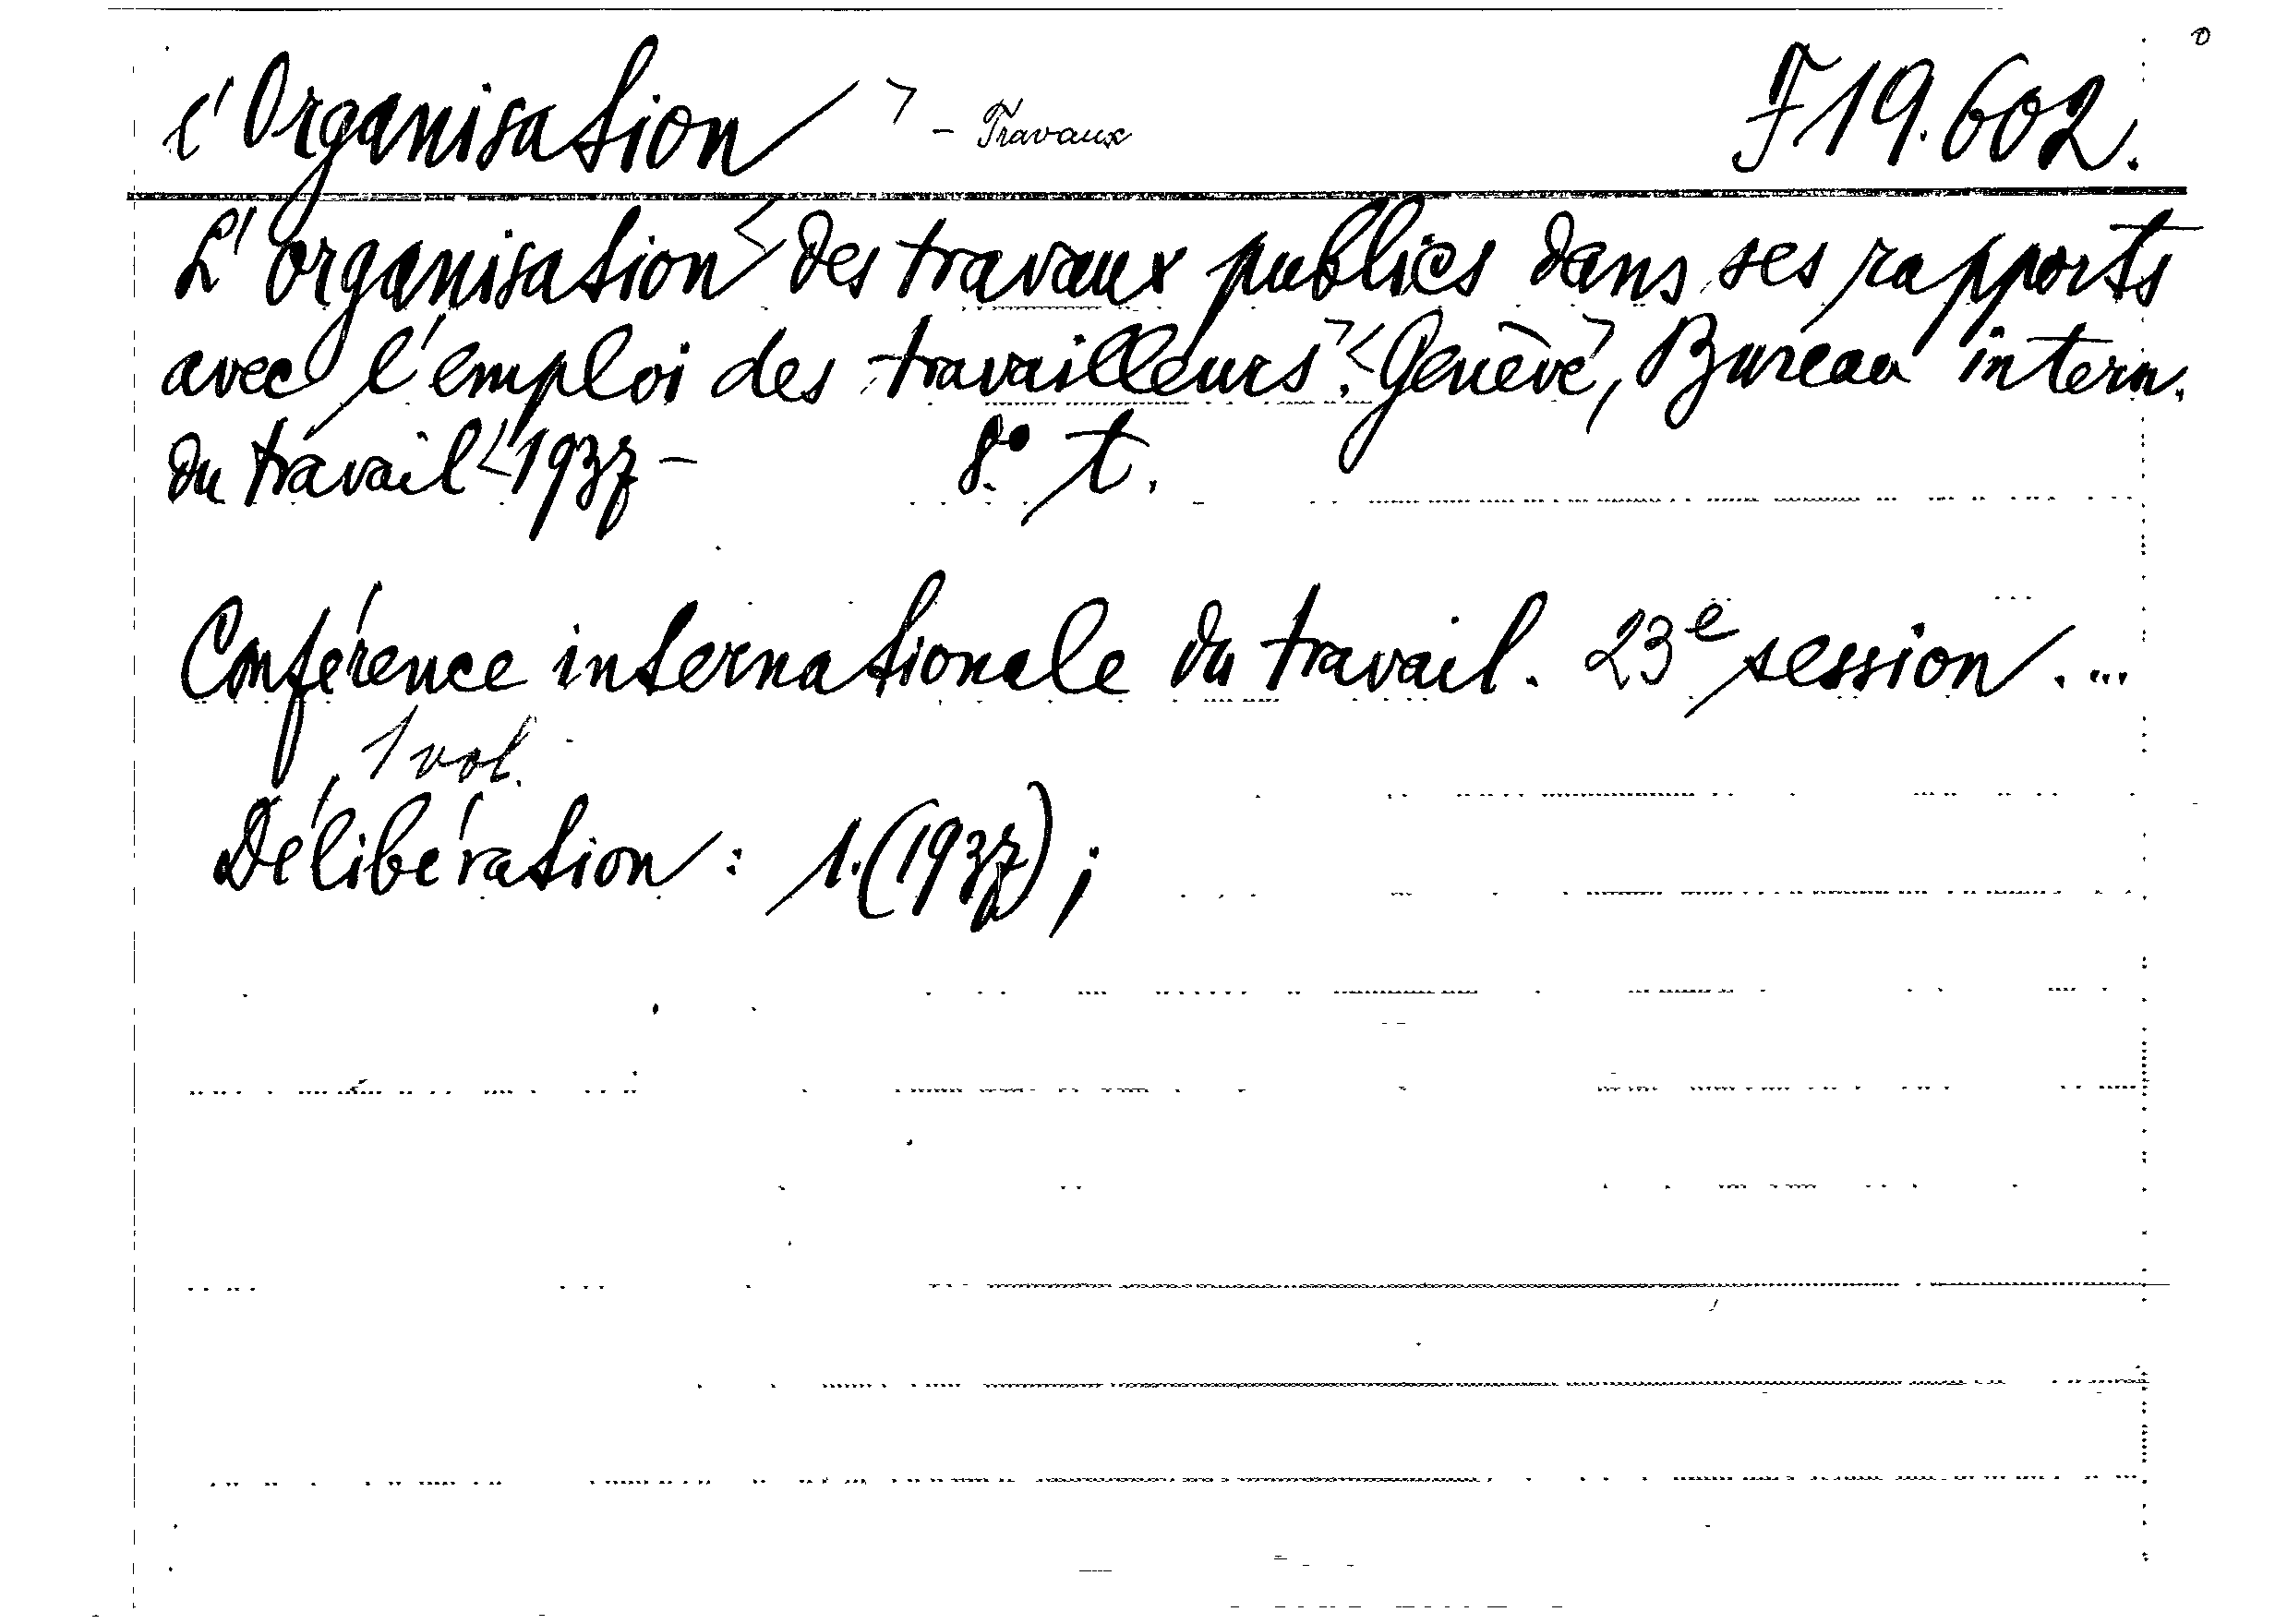 l'Organisation > - Travaux F 19.602.
L'organisation < des travaux publics dans ses rapports
avec l'emploi des travailleurs >. < Genève >, Bureau intern.
du travail < 1937 - 8° t.
Conférence internationale du travail. 23e session. ...
1 vol.
Délibération : 1.(1937);